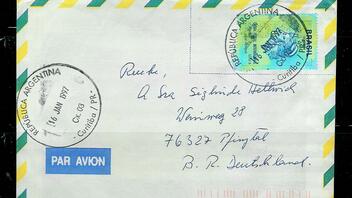 REPÚBLICA ARGENTINA
16 JAN 1997
Cx. 03
Curitiba / PR
REPÚBLICA ARGENTINA
16 JAN 1997
Curitiba
BRASIL
A Sra Sieglinde
76327 Pfinztal
B. R. Deutschland.
PAR AVION